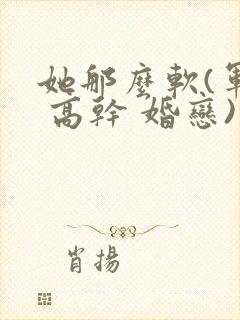 她那麼軟(軍
高幹 婚戀)
肖揚